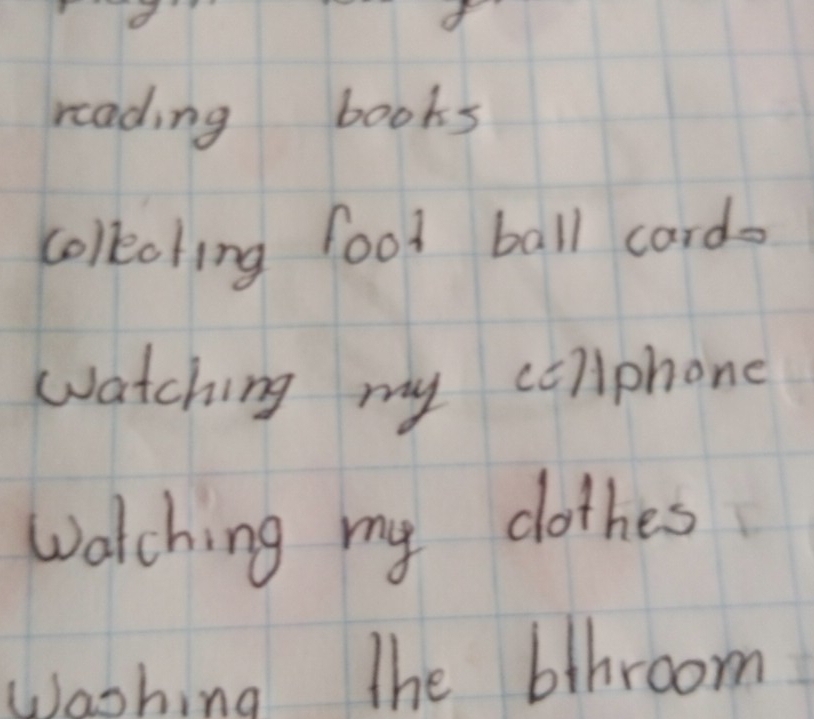 reading books
collecting foot ball cards
watching my cellphone
watching my clothes
washing the bthroom